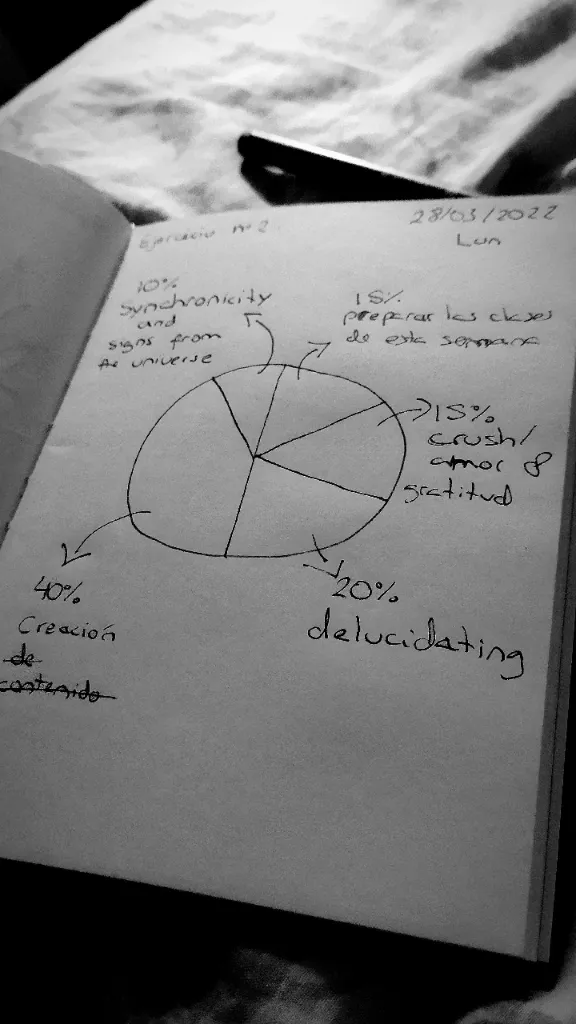 Ejercicio nº 2
28/03/2022
Lun
10%
Synchronicity
and
signs from
the universe
15%
preparar las clases
de esta semana
15%
crush/
amor &
gratitud
40%
Creación
de
contenido
20%
delucidating